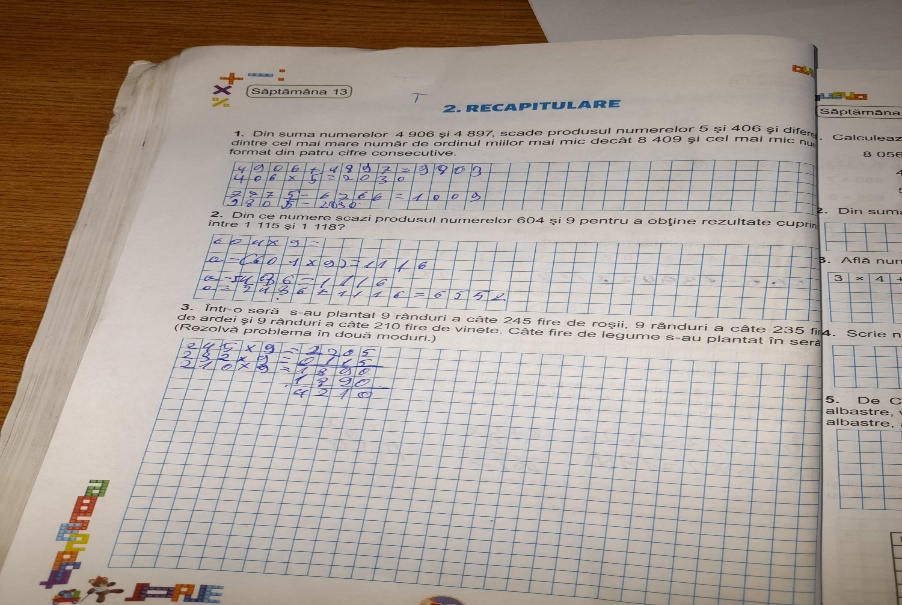 Săptămâna 13
T
2. RECAPITULARE
1. Din suma numerelor 4 906 și 4 897, scade produsul numerelor 5 și 406 și difere
dintre cel mai mare număr de ordinul miilor mai mic decât 8 409 și cel mai mic nu
format din patru cifre consecutive.
4906+4897=9803
406×5=2030
2. Din ce numere scazi produsul numerelor 604 și 9 pentru a obține rezultate cuprin
între 1 115 și 1 118?
604×9=
=1116
3. Într-o seră s-au plantat 9 rânduri a câte 245 fire de roșii, 9 rânduri a câte 235 fi
de ardei și 9 rânduri a câte 210 fire de vinete. Câte fire de legume s-au plantat în seră
(Rezolvă problema în două moduri.)
245×9=2205
210×9=1890
1890
4210
Săptămâna
Calculeaz
8 056
2. Din suma
3. Află num
3 × 4 +
4. Scrie n
5. De C
albastre,
albastre,